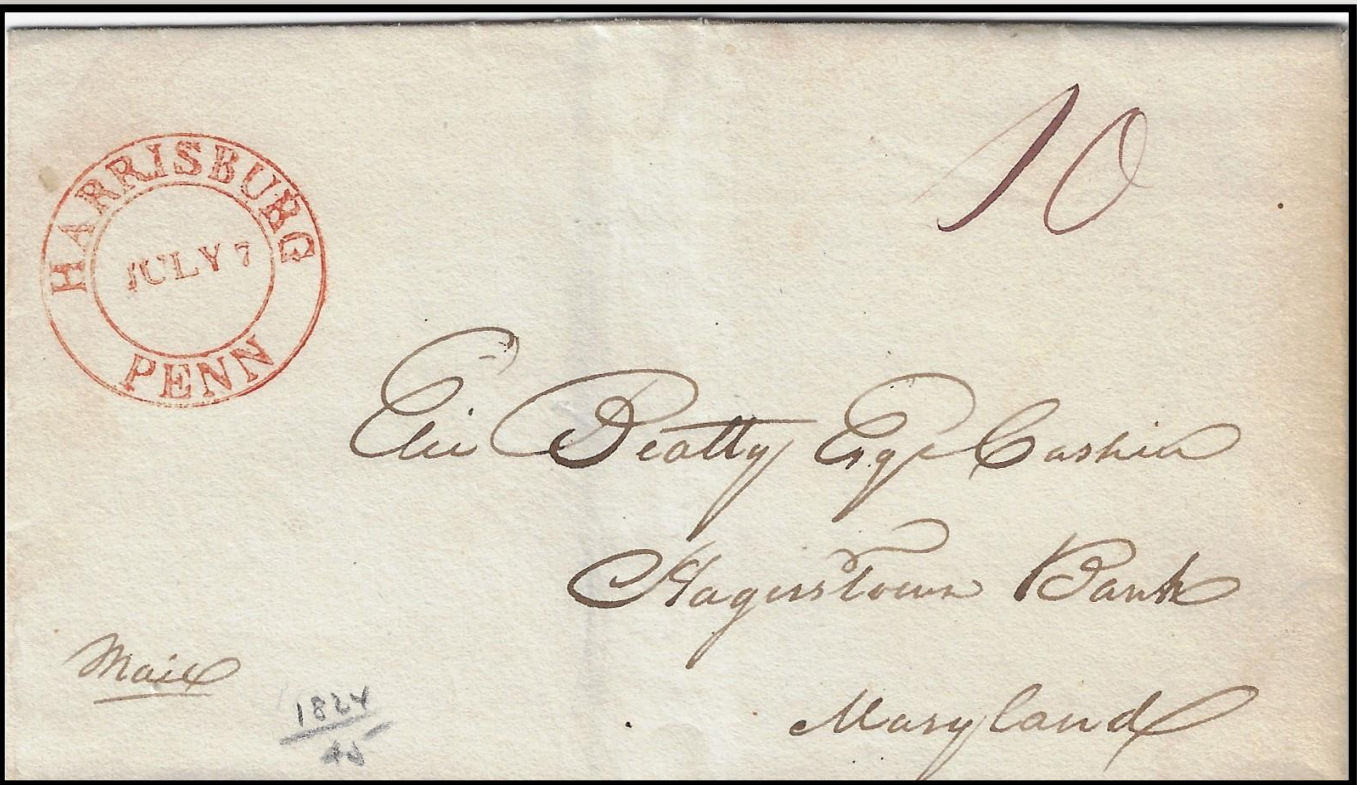 HARRISBURG
JULY 7
PENN
10
Elie Beatty Esqr Cashier
Hagerstown Bank
Maryland
Mail
1824